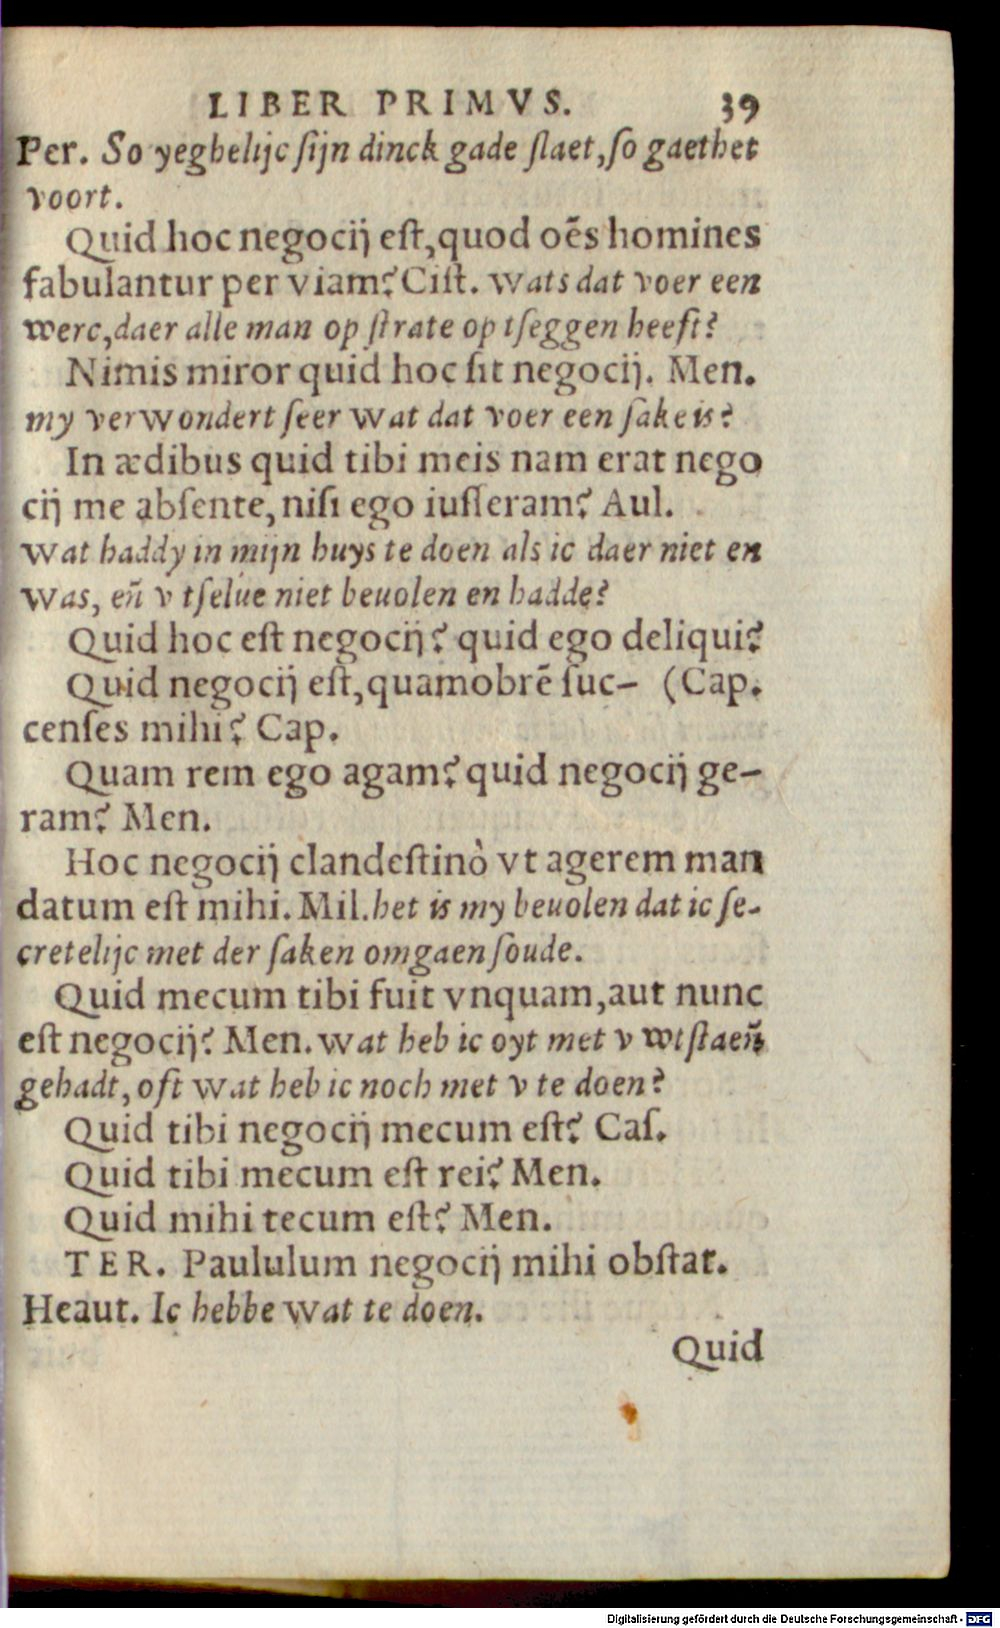 LIBER PRIMVS. 39
Per. So yeghelijc ſijn dinck gade ſlaet, ſo gaethet
voort.
Quid hoc negocij eſt, quod oēs homines
fabulantur per viam? Ciſt. Wats dat voer een
werc, daer alle man op ſtrate op tſeggen heeft?
Nimis miror quid hoc ſit negocij. Men.
my verwondert ſeer wat dat voer een ſake is?
In ædibus quid tibi meis nam erat nego
cij me abſente, niſi ego iuſſeram? Aul.
Wat haddy in mijn huys te doen als ic daer niet en
was, eñ v tſelue niet beuolen en hadde?
Quid hoc eſt negocij? quid ego deliqui?
Quid negocij eſt, quamobrē ſuc- (Cap.
cenſes mihi? Cap.
Quam rem ego agam? quid negocij ge-
ram? Men.
Hoc negocij clandeſtinò vt agerem man
datum eſt mihi. Mil. het is my beuolen dat ic ſe-
cretelijc met der ſaken omgaen ſoude.
Quid mecum tibi fuit vnquam, aut nunc
eſt negocij? Men. Wat heb ic oyt met v wtſtaeñ
gehadt, oft wat heb ic noch met v te doen?
Quid tibi negocij mecum eſt? Caſ.
Quid tibi mecum eſt rei? Men.
Quid mihi tecum eſt? Men.
TER. Paululum negocij mihi obſtat.
Heaut. Ic hebbe wat te doen.
Quid
Digitalisierung gefördert durch die Deutsche Forschungsgemeinschaft - DFG